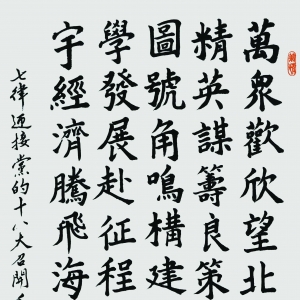 萬眾歡欣望北
精英謀籌良策
圖號角鳴構建
學發展赴征程
宇經濟騰飛海
七律迎接黨的十八大召開